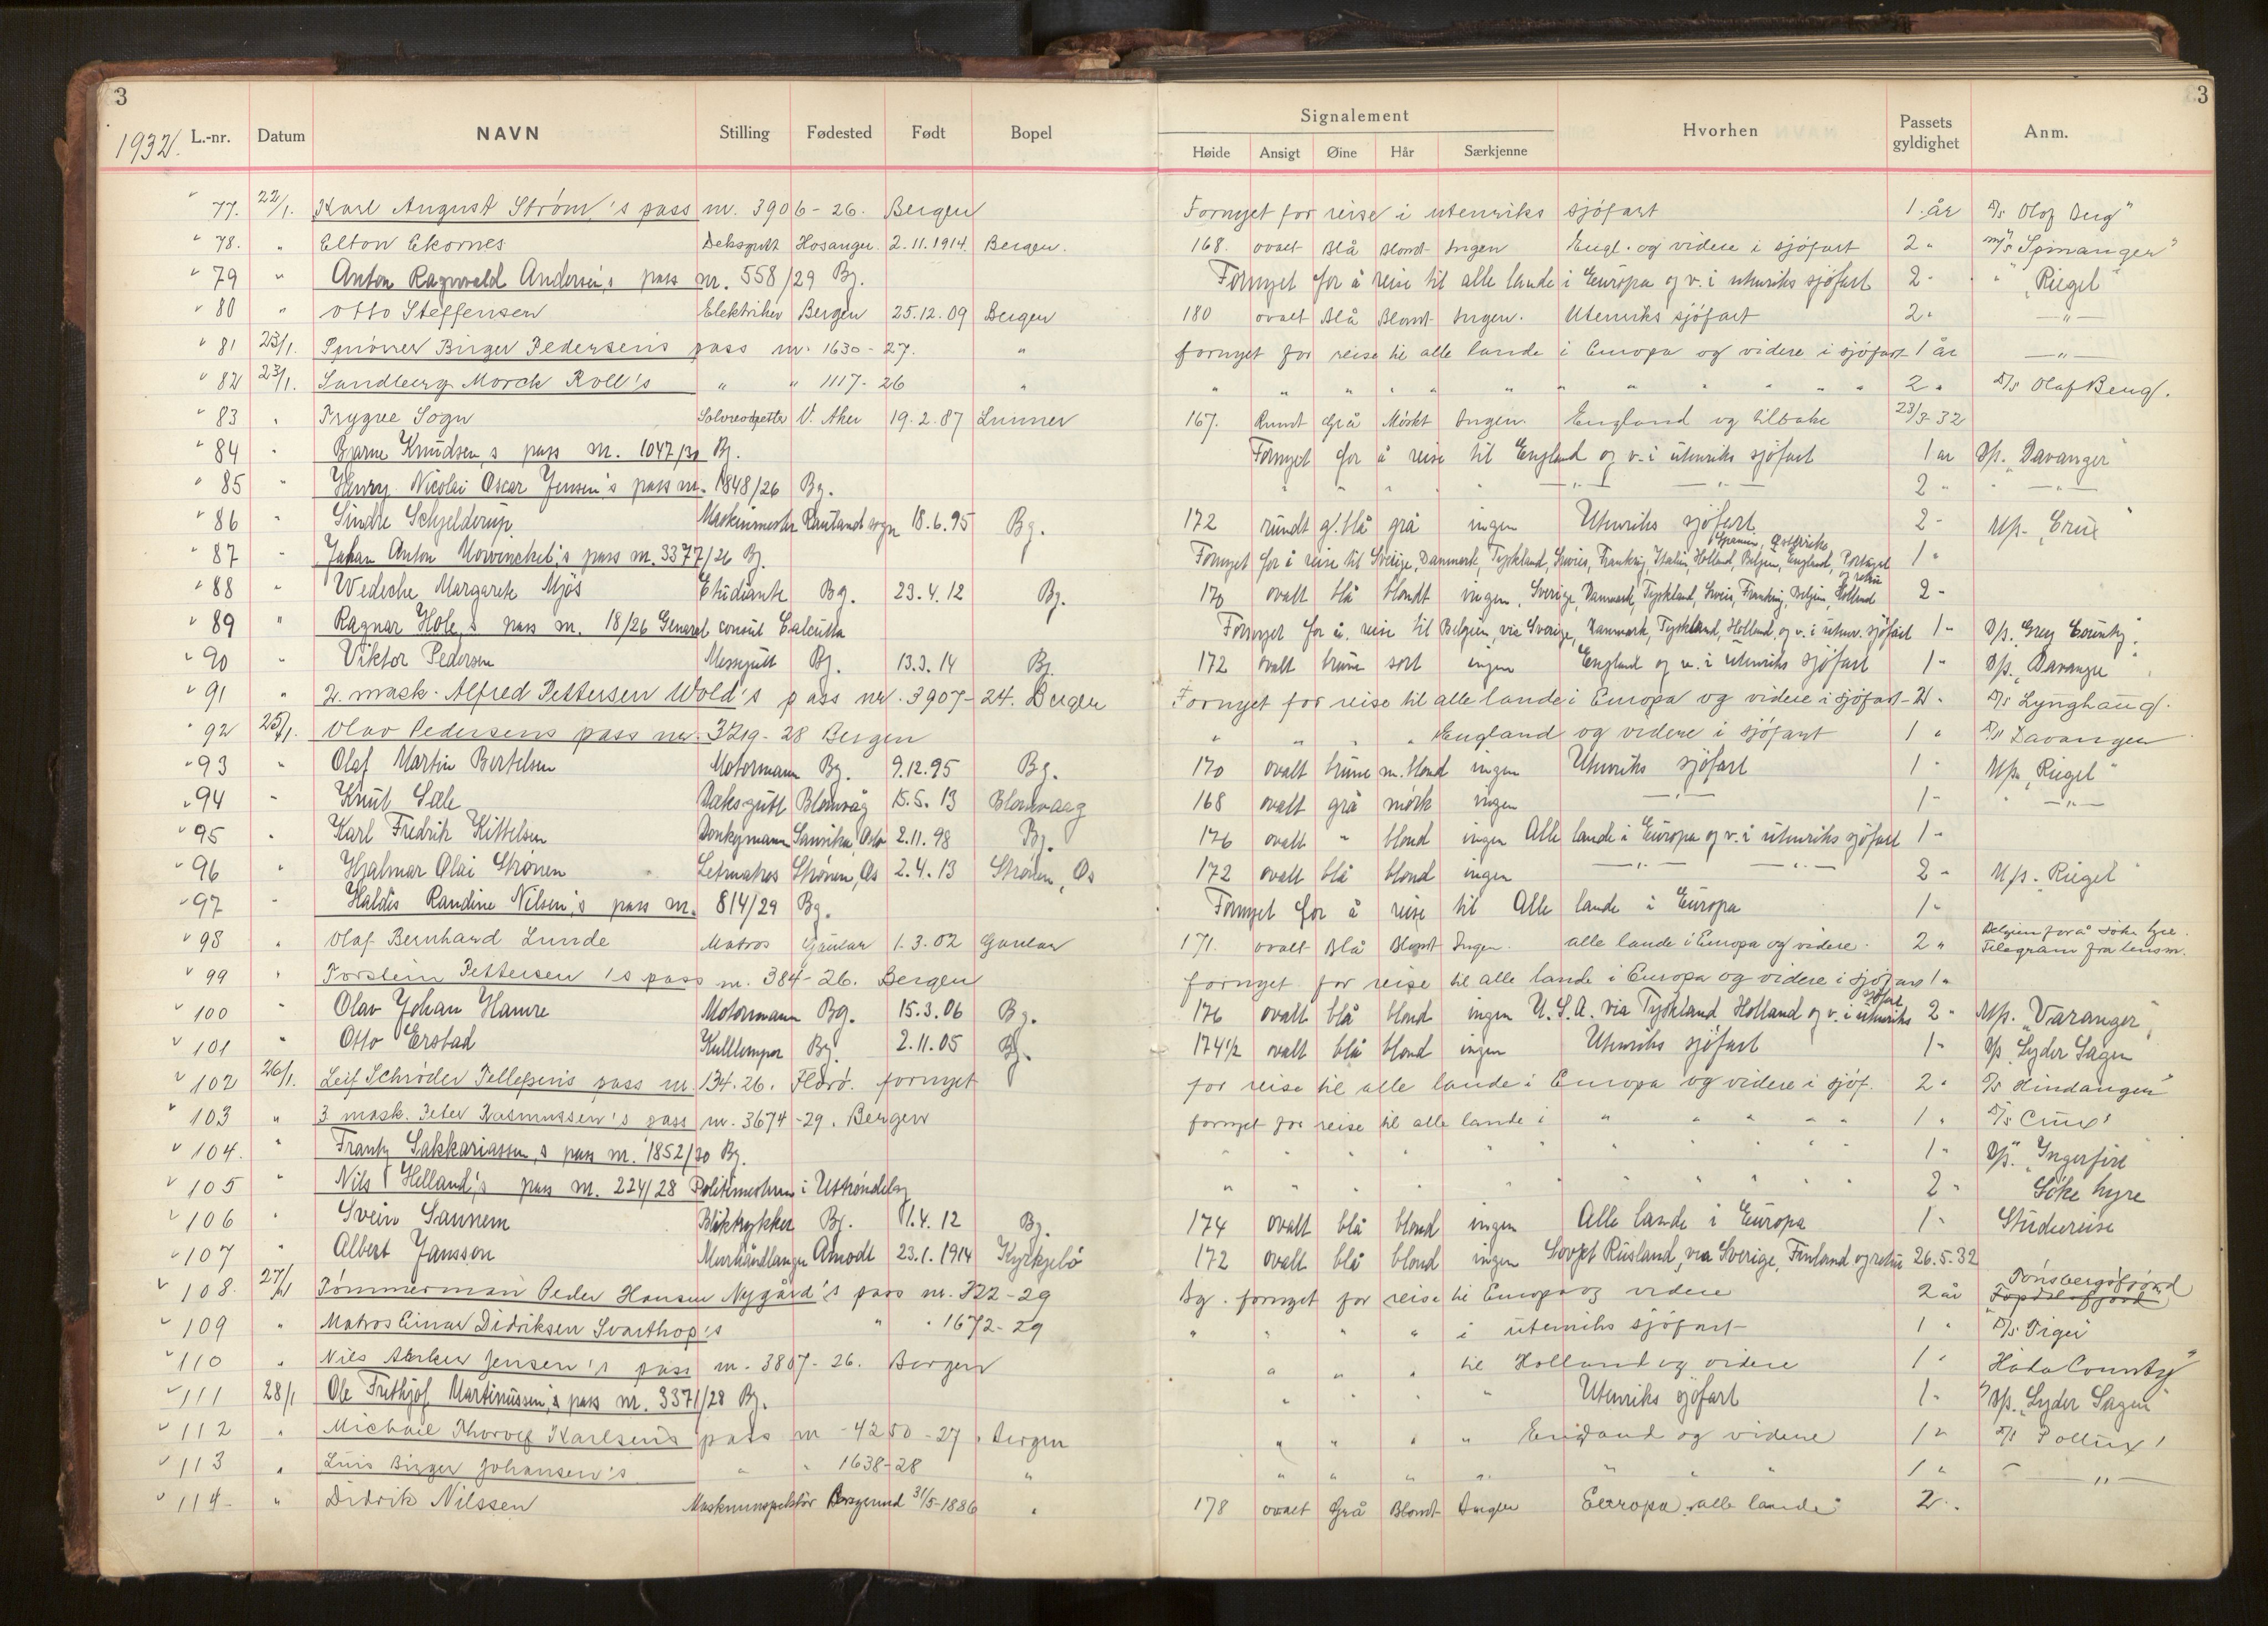 3
1932. L.-nr. Datum NAVN Stilling Fødested Født Bopel
Signalement
Høide Ansigt Øine Hår Særkjenne Hvorhen Passets gyldighet Anm.
3
" 77. 22/1. Karl August Strøm's pass nr. 3906-26. Bergen Fornyet for reise i utenriks sjöfart 1. år D/s Olof
" 78. " Elton Ekornes Deksgutt Hosanger. 2.11.1914. Bergen. 168. ovalt Blå Blondt Ingen Engl. og videre i sjöfart 2 " M/s "Spinanger"
" 79 " Anton Ragnvald Andersen's pass nr. 558/29 Bg. Fornyet for å reise til alle lande i Europa og v. i utenriks sjöfart 2 - " "Riegel"
" 80 " Otto Steffensen Elektriker Bergen 25.12.09 Bergen 180 ovalt Blå Blondt Ingen. Utenriks sjöfart 2 " — " —
" 81 23/1. Birger Pedersens pass nr. 1630-27. " fornyet for reise til alle lande i Europa og videre i sjöfart 1 år — " —
" 82 23/1. Sandberg Morch Roll's " " 1117-26 " " " " " " " " " " " " " 2 " D/s Olaf
" 83 " Trygve Sogn V. Aker 19.2.87 Lunner 167. Rundt Grå Mörkt Ingen. England og tilbake 23/3-32
" 84 " Bjarne Knudsen,s pass nr. 1047/30 Bg. Fornyet for å reise til England og v. i utenriks sjöfart 1 år D/s. "Davanger"
" 85 " Henry Nicolai Oscar Jensen's pass nr. 1848/26 Bg. " " " " " — " — — " — 2 " " — " —
" 86 " Sindre Schjelderup Maskinmester Rauland sogn 18.6.95 Bg. 172 rundt g/blå grå ingen Utenriks sjöfart 2 - M/s. "Crux"
" 87 " Johan Anton Mowinckel's pass nr. 3377/26 Bg. Fornyet for å reise til Sverige, Danmark, Tyskland, Sveits, Frankrig, Italien, Holland, Belgien, England, Portugal Spanien, Østerrike 1 "
" 88 " Wedeche Margarete Mjös Etudiante Bg. 23.4.12 Bg. 170 ovalt blå blondt ingen. Sverige, Danmark, Tyskland, Sveis, Frankrig, Belgien, Holland og retur 2 -
" 89 " Ragnar Hole,s pass nr. 18/26 General consul Calcutta Fornyet for å reise til Belgien, via Sverige, Danmark, Tyskland, Holland, og v. i utenr. sjöfart 1 - D/s. "Grey County".
" 90 " Viktor Pedersen Messegutt Bg. 13.3.14 Bg. 172 ovalt brune sort ingen England og v. i utenriks sjöfart 1 - D/s. "Davanger"
" 91 " 2. mask. Alfred Pettersen Wold's pass nr. 3907-24. Bergen Fornyet for reise til alle lande i Europa og videre i sjöfart - 2 " D/s Lynghaug.
" 92 25/1. Olav Pedersens pass nr. 3219-28 Bergen " " " " England og videre i sjöfart 1 " D/s Davanger
" 93 " Olaf Martin Bertelsen Motormann Bg. 9.12.95 Bg. 170 ovalt brune m.blond ingen Utenriks sjöfart 1 - M/s. "Riegel"
" 94 " Knut Sæle Deksgutt Blomvåg 15.5.13 Blomvaag 168 ovalt grå mörk ingen — " — 1 - " — " —
" 95 " Karl Fredrik Kittelsen Donkeymann Oslo 2.11.98 Bg. 176 ovalt " blond ingen Alle lande i Europa og v. i utenriks sjöfart 1 -
" 96 " Hjalmar Olai Strönen Letmatros Strönen, Os 2.4.13 Strönen, Os 172 ovalt blå blond ingen — " — — " — 2 - M/s. "Riegel"
" 97 " Haldis Randine Nilsen,s pass nr. 814/29 Bg. Fornyet for å reise til Alle lande i Europa 1 -
" 98 " Olaf Bernhard Lunde Matros Gaular 1.3.02 Gaular 171. ovalt Blå Blondt Ingen. alle lande i Europa og videre. 2 " Belgien for å söke hyre. Telegram fra lensm.
" 99 " Torstein Pettersen's pass nr. 384-26. Bergen fornyet for reise til alle lande i Europa og videre i sjöfart 1 "
" 100 " Olav Johan Hamre Motormann Bg. 15.3.06 Bg. 176 ovalt blå blond ingen U.S.A. via Tyskland Holland og v. i utenriks sjöfart 2 " M/s. "Varanger"
" 101 " Otto Erstad Kullemper Bg. 2.11.05 Bg. 174 1/2 ovalt blå blond ingen Utenriks sjöfart 1 - D/s "Lyder Sagen"
" 102 26/1. Leif Schröder Tellefsens pass nr. 134.26. Florö. fornyet for reise til alle lande i Europa og videre i sjöf. 2 " D/s Hindanger"
" 103 " 3 mask. Peter Rasmussen's pass nr. 3674-29. Bergen fornyet for reise til alle lande i " " " " " 1 " D/s Crux"
" 104. " Frantz Sakkariassen,s pass nr. 1852/30 Bg. " " " " " " " " " " " 1 - D/s. "Ingerfire"
" 105 " Nils Helland's pass nr. 224/28 Politimesteren i Uttröndelag " " " " " " " " " " " 2 " Söke hyre
" 106 " Svein Sannem Bliktrykker Bg. 11.4.12 Bg. 174 ovalt blå blond ingen Alle lande i Europa 1 - Studiereise
" 107 " Albert Jansson Murhåndlanger Åmodt 23.1.1914 Kyrkjebö 172 ovalt blå blond ingen Sovjet Rusland, via Sverige, Finland og retur 26.5.32
" 108. 27/1 Tömmermann Peder Hansen Nygård's pass nr. 322-29 Bg. fornyet for reise til Europa og videre 2 år Tönsbergsfjord
" 109 " Matros Einar Didriksen Svarthop's " " 1672-29 " " " " i utenriks sjöfart 1 " D/s Tiger
" 110 " Nils Jensen's pass nr. 3807-26. Bergen " " " til Holland og videre 1 " Hada County"
" 111 28/1 Ole Frithjof Martinussen,s pass nr. 3371/28 Bg. " " " " Utenriks sjöfart 1 - D/s. "Lyder Sagen"
" 112 " Michael Thorolf Karlsens pass nr 4250-27. Bergen " " " " England og videre 1 " D/s Pollux"
" 113 " Birger Johansen's " " 1638-28 " " " " " " " " 1 " — " —
" 114- " Didrik Nilssen Maskininspektör Borgund 31/5-1886 " 178 ovalt Grå Blondt Ingen Europa alle lande 2 "